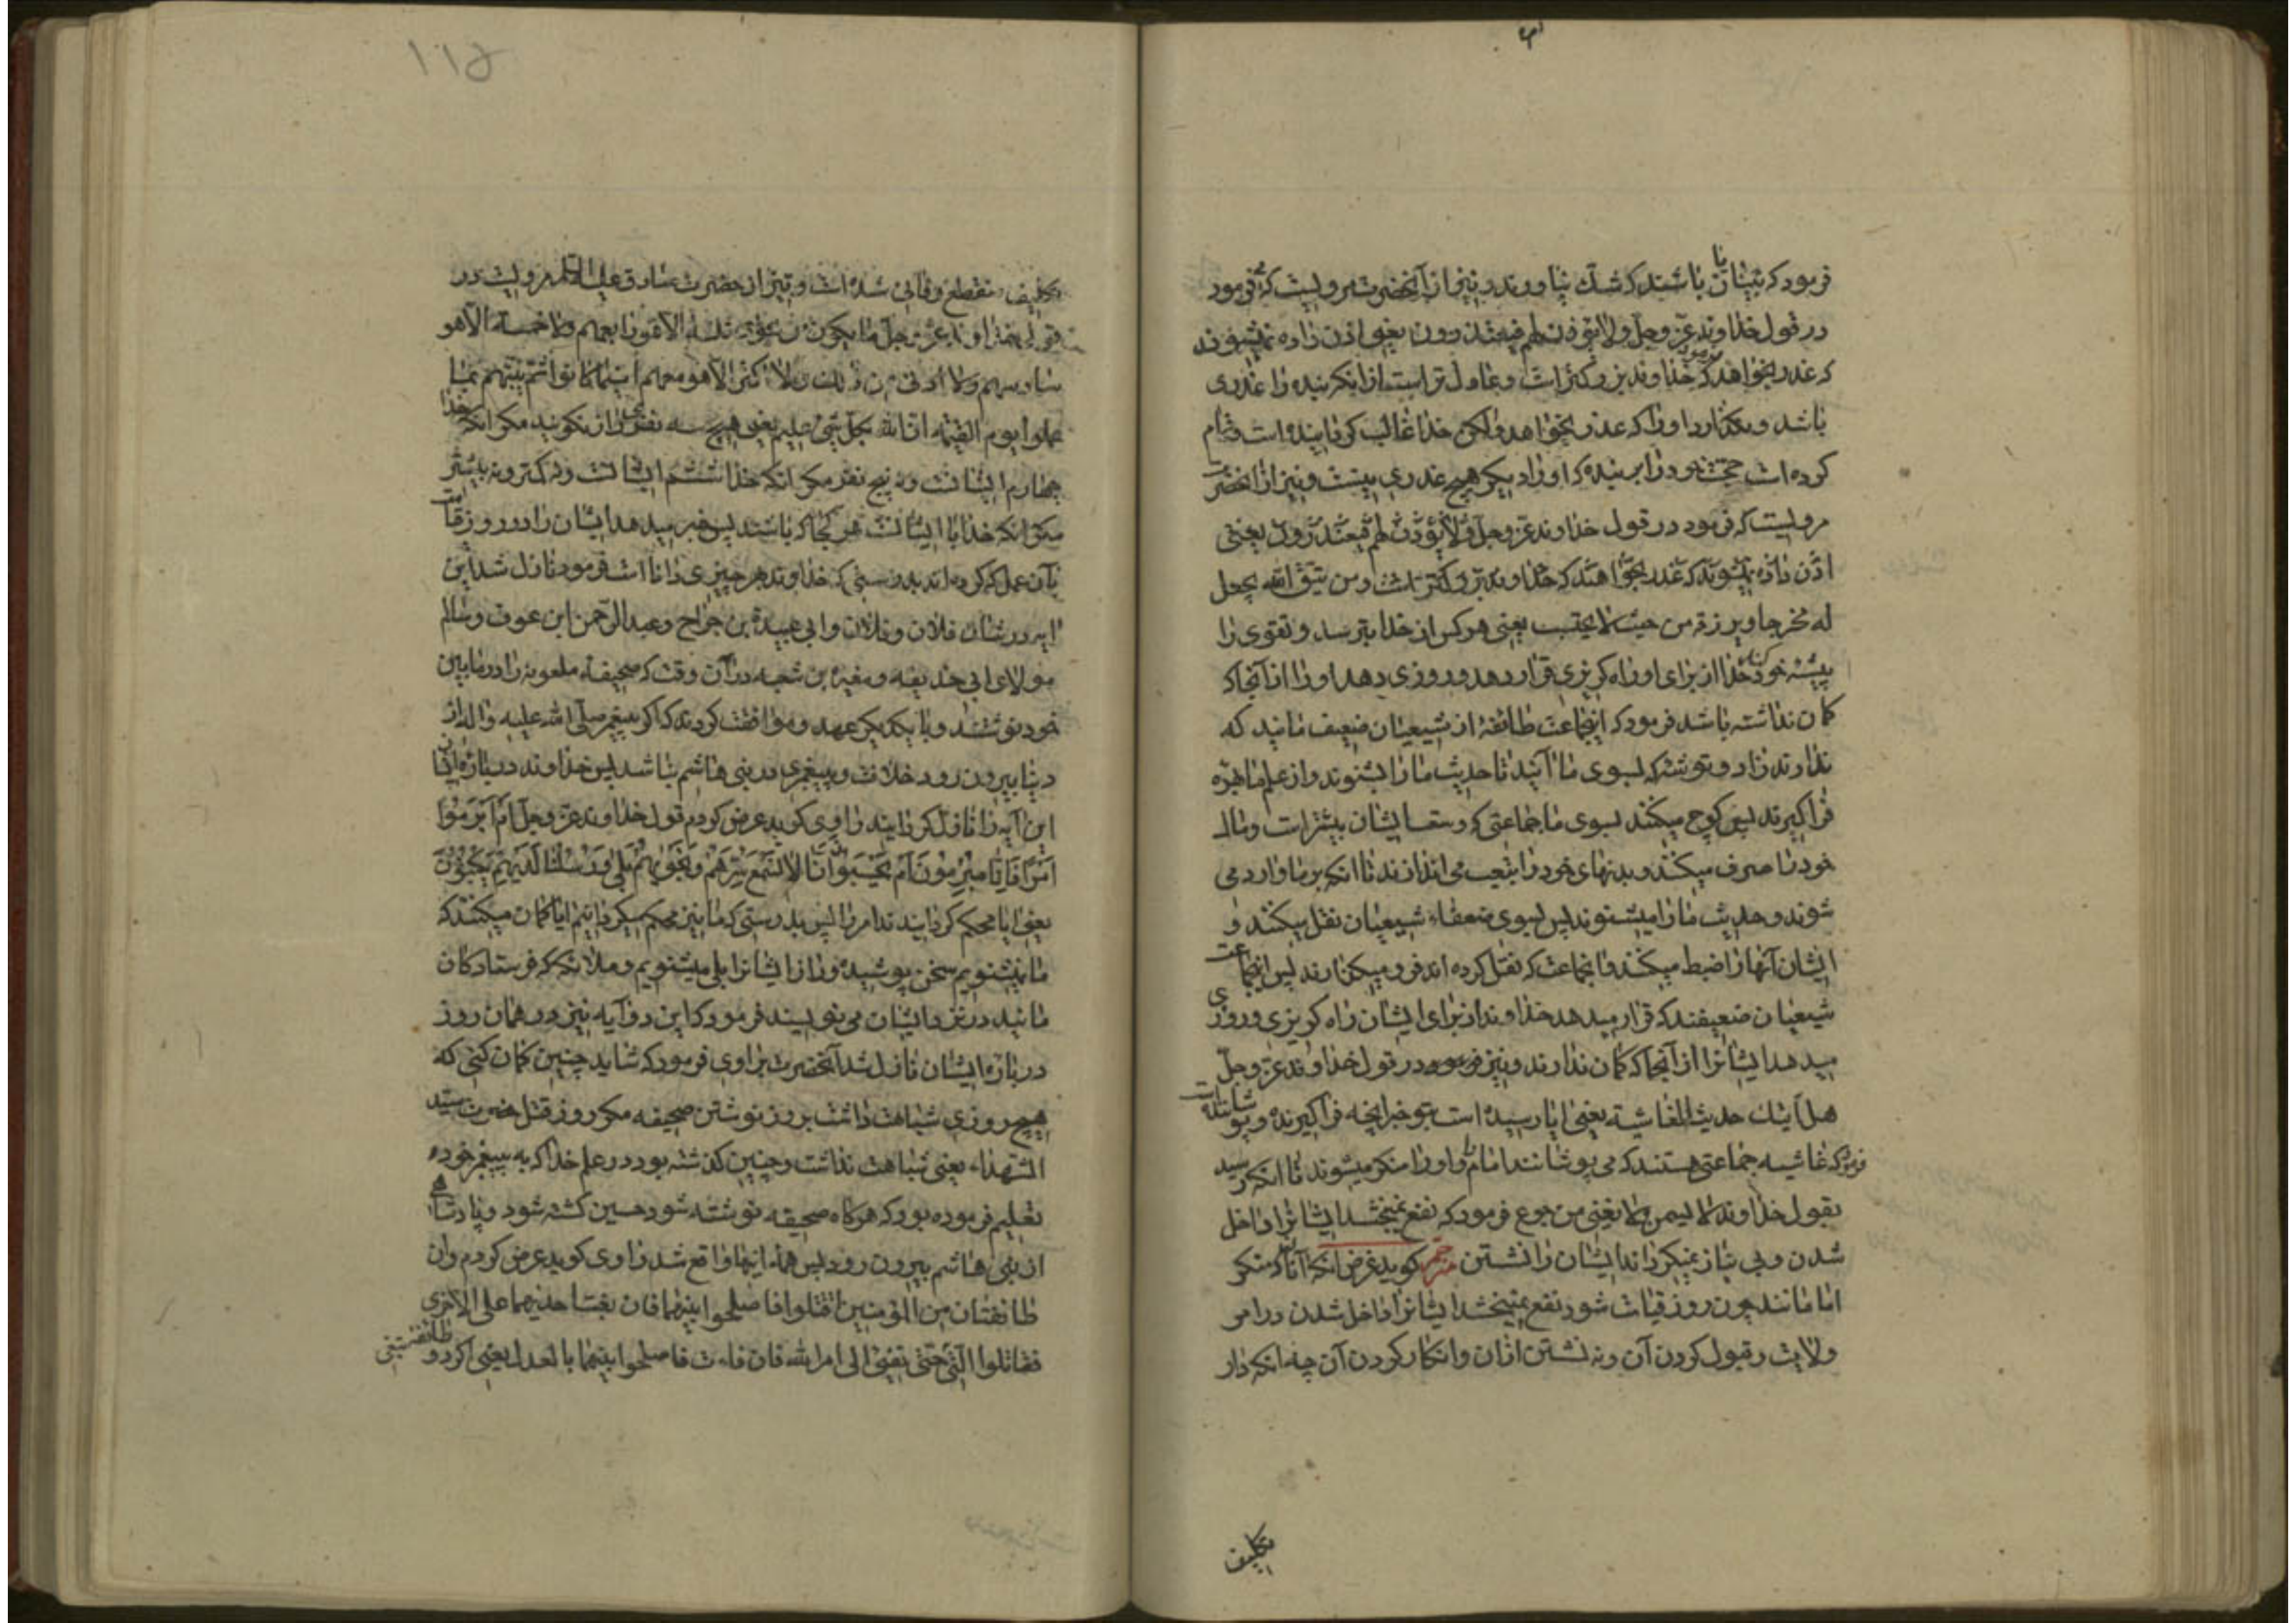 فرمود که بینا تا باشند که شک نیاورند و نیز از آنحضرت مرویست که فرمود
در قول خداوند عز وجل ولا یؤذن لهم فیعتذرون یعنی اذن داده نمیشوند
که عذر بخواهند که فرمود خداوند بزرکتر است و عادل تر است از انکه بنده را عذری
باشد و نکذارد او را که عذر بخواهد ولکن خدا غالب کردانیده است و تمام
کرده است حجت خود را بر بنده که او را دیکر هیچ عذری نیست و نیز از انحضرت
مرویست که فرمود در قول خداوند عز وجل ولا یؤذن لهم فیعتذرون یعنی
اذن داده نمیشوند که عذر بخواهند که خداوند بزرکتر است ومن یتق الله یجعل
له مخرجا ویرزقه من حیث لا یحتسب یعنی هرکس از خدا بترسد و تقوی را
پیشه خود کند خدا از برای او راه کریزی قرار دهد و روزی دهد او را از آنجا که
کمان نداشته باشد فرمود که اینجماعت طائفهٔ از شیعیان ضعیف مانید که
ندارند زاد و توشه که بسوی ما آیند تا حدیث ما را بشنوند و از علم ما بهره
فرا کیرند پس کوچ میکنند بسوی ما جماعتی که وسعت ایشان بیشتر است و مال
خود را صرف میکنند و بدنهای خود را بتعب می اندازند تا انکه بر ما وارد می
شوند و حدیث ما را میشنوند پس بسوی ضعفاء شیعیان نقل میکنند و
ایشان آنها را ضبط میکنند و انجماعت که نقل کرده اند فرو میکذارند پس اینجماعت
شیعیان ضعیفند که قرار میدهد خداوند از برای ایشان راه کریزی و روزی
میدهد ایشانرا از آنجا که کمان ندارند و نیز فرمود در قول خداوند عز وجل
هل اتیک حدیث الغاشیة یعنی ایا رسیده است بتو خبر انچه فرا کیرنده و پوشاننده است
فرمود که غاشیه جماعتی هستند که می پوشانند امام را و او را منکر میشوند تا انکه رسید
بقول خداوند لا یسمن ولا یغنی من جوع فرمود که نفع نمیبخشد ایشانرا داخل
شدن و بی نیاز نمیکرداند ایشان را نشستن مترجم کوید غرض انکه آنان که منکر
امامانند چون روز قیامت شود نفع نمیبخشد ایشانرا داخل شدن در امر
ولایت و قبول کردن آن و نه نشستن ازان و انکار کردن آن چه انکه دار
تکلیف
۱۱۵
تکلیف منقطع و فانی شده است و نیز از حضرت صادق علیه السلام مرویست در
قول خداوند عز وجل ما یکون من نجوی ثلثة الا هو رابعهم ولا خمسة الا هو
سادسهم ولا ادنی من ذلک ولا اکثر الا هو معهم اینما کانوا ثم ینبئهم بما
عملوا یوم القیمة ان الله بکل شیء علیم یعنی هیچ سه نفری راز نکویند مکر انکه خدا
چهارم ایشانست و نه پنج نفر مکر انکه خدا ششم ایشانست و نه کمتر و نه بیشتر
مکر انکه خدا با ایشانست هر کجا که باشند پس خبر میدهد ایشان را در روز قیامت
بآن عمل که کرده اند بدرستی که خداوند بهر چیزی دانا است فرمود نازل شد این
ایه در شان فلان و فلان و ابی عبیدة بن جراح و عبد الرحمن ابن عوف و سالم
مولای ابی حذیفه و مغیرة بن شعبه در آن وقت که صحیفهٔ ملعونه را در مابین
خود نوشتند و با یکدیکر عهد و موافقت کردند که اکر پیغمبر صلی الله علیه و اله از
دنیا بیرون رود خلافت و پیغمبری در بنی هاشم نباشد پس خداوند در بارهٔ ایشان
این آیه را نازل کردانید راوی کوید عرض کردم قول خداوند عز وجل ام ابرموا
امرا فانا مبرمون ام یحسبون انا لا نسمع سرهم ونجویهم بلی ورسلنا لدیهم یکتبون
یعنی ایا محکم کردانیدند امر را پس بدرستی که ما نیز محکم میکردانیم ایا کمان میکنند که
ما نمیشنویم سخن پوشیده و راز ایشانرا بلی میشنویم و ملائکه که فرستادکان
مانید در نزد ایشان می نویسند فرمود که این دو آیه نیز در همان روز
در باره ایشان نازل شد آنحضرت براوی فرمود که شاید چنین کمان کنی که
هیچ روزی شباهت داشت بروز نوشتن صحیفه مکر روز قتل حضرت سید
الشهداء یعنی شباهت نداشت و چنین کذشته بود در علم خدا که به پیغمبر خود
تعلیم فرموده بود که هرکاه صحیفه نوشته شود حسین کشته شود و پادشاهی
از بنی هاشم بیرون رود پس همهٔ اینها واقع شد راوی کوید عرض کردم وان
طائفتان من المؤمنین اقتتلوا فاصلحوا بینهما فان بغت احدیهما علی الاخری
فقاتلوا التی حتی تفیء الی امر الله فان فاءت فاصلحوا بینهما بالعدل یعنی اکر دو طائفه